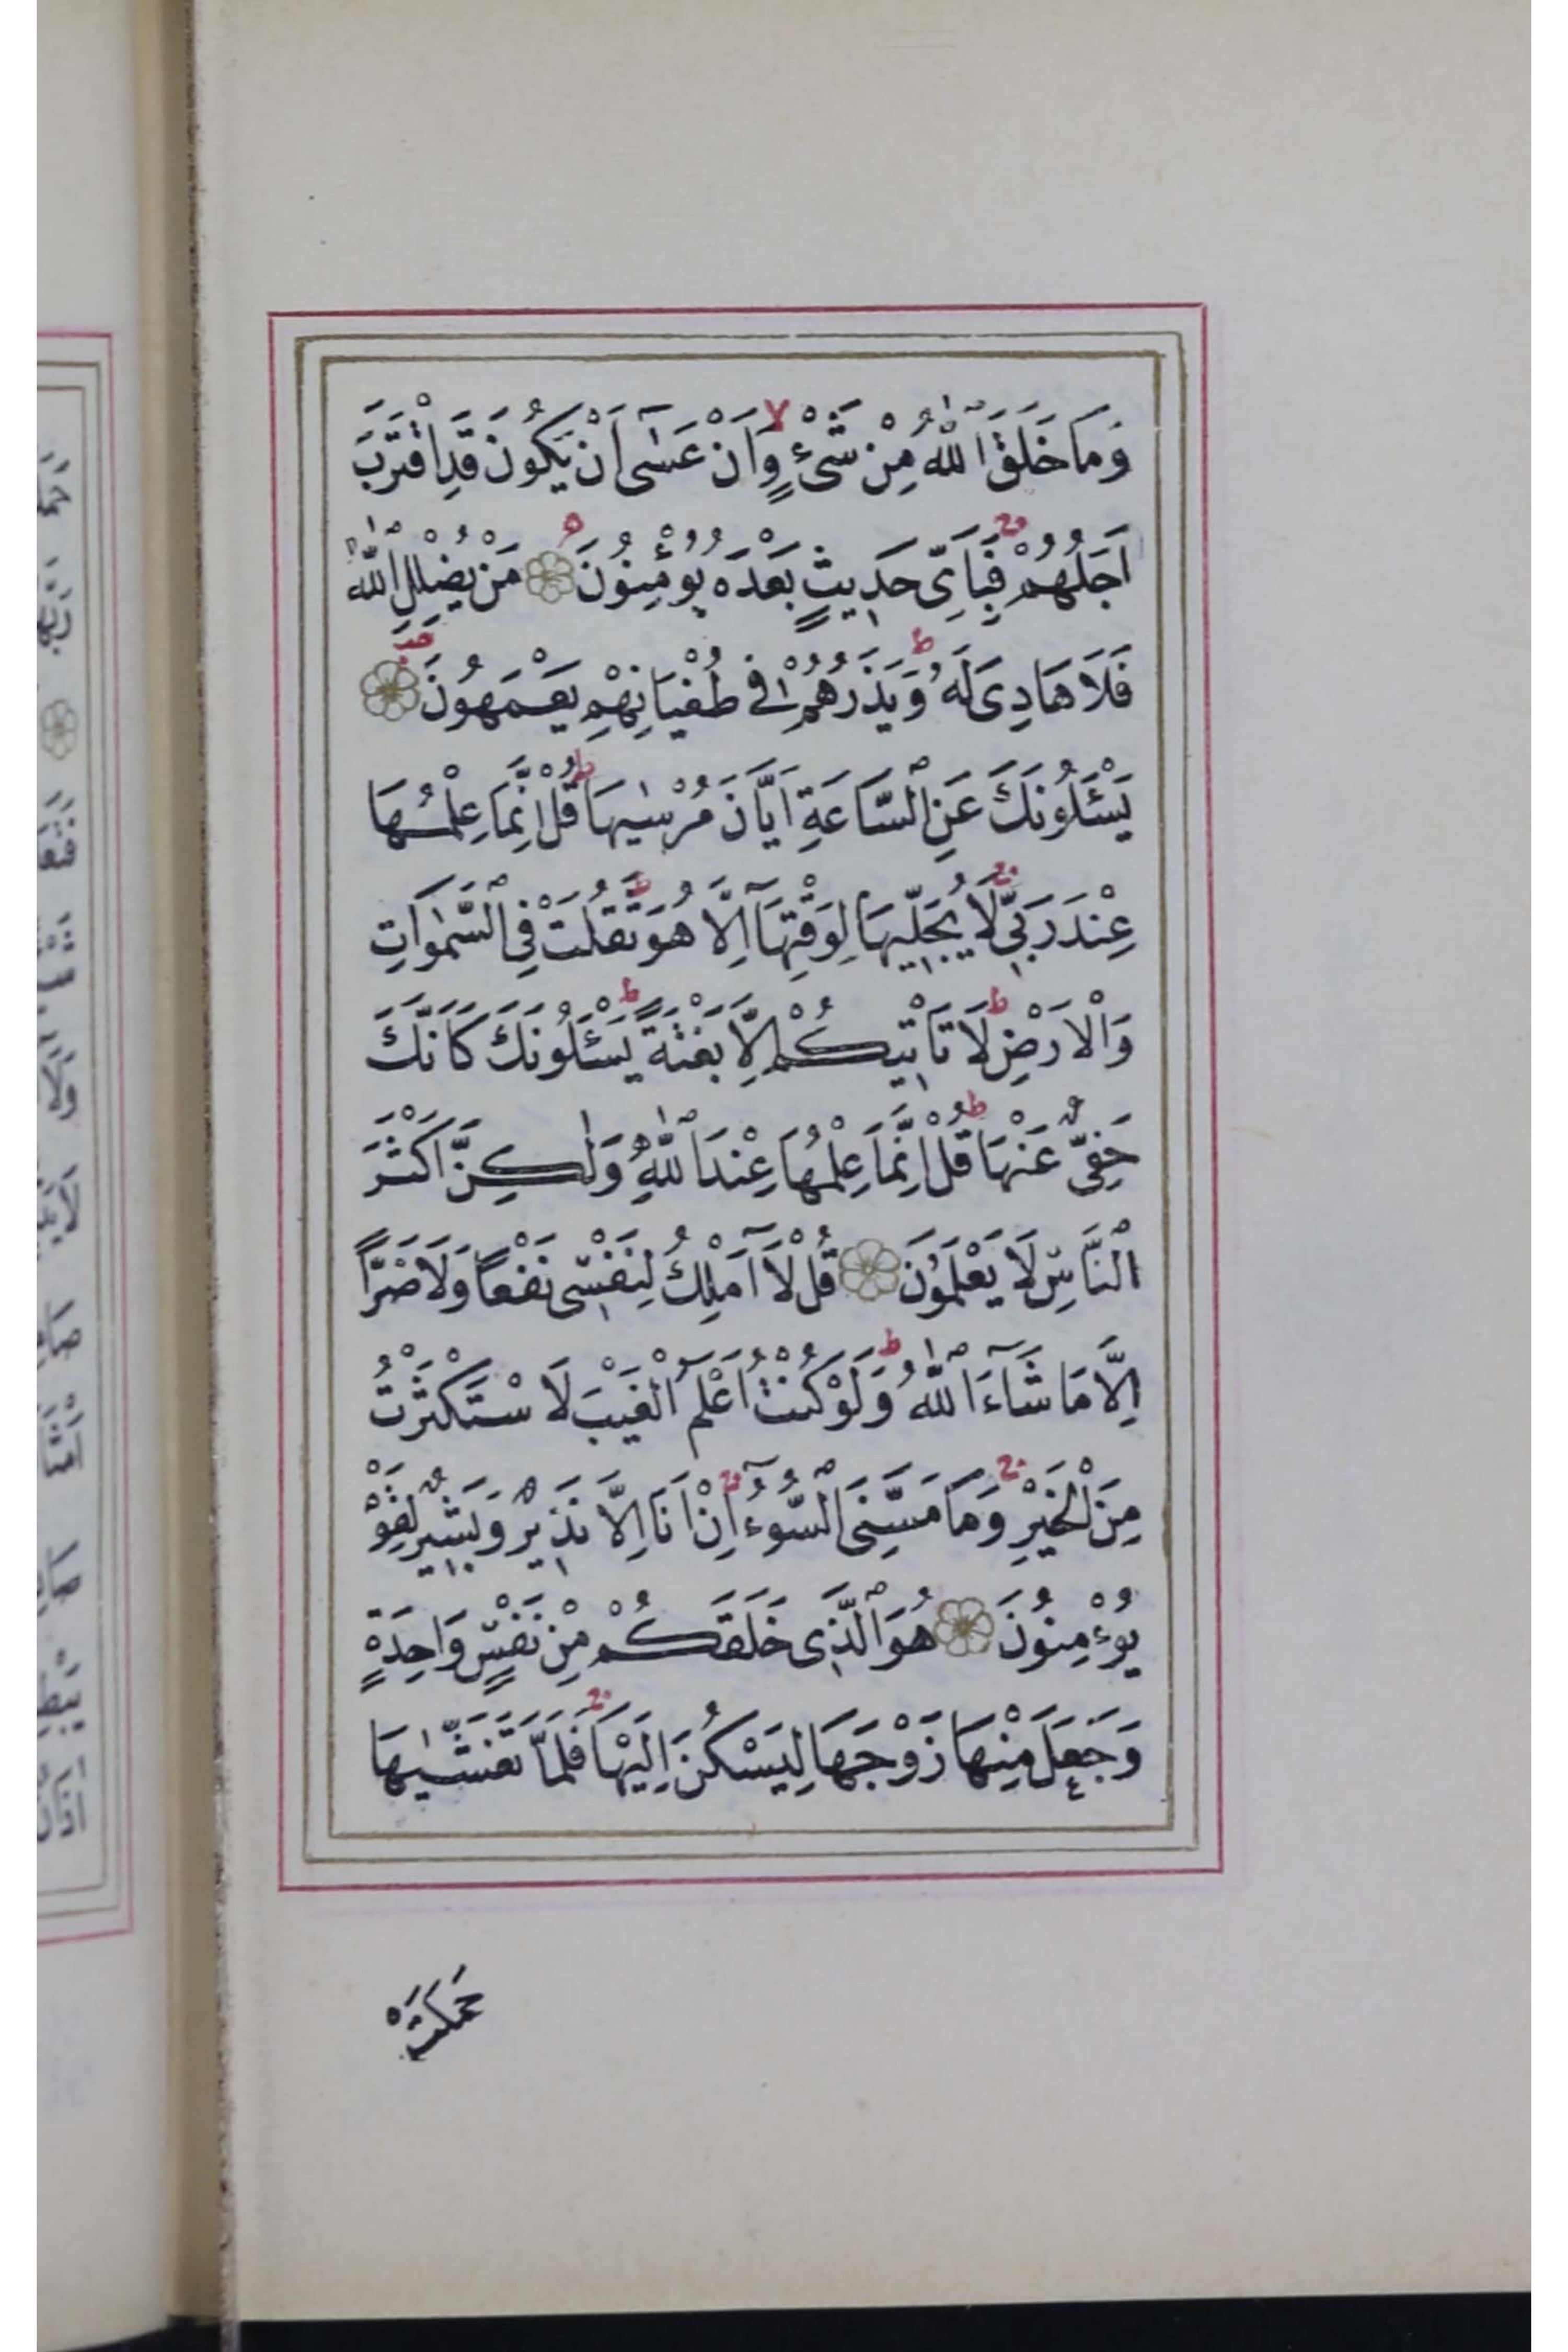 وَمَا خَلَقَ اللّٰهُ مِنْ شَیْءٍ وَاَنْ عَسٰٓى اَنْ یَكُونَ قَدِ اقْتَرَبَ
اَجَلُهُمْ فَبِاَىِّ حَدِیثٍ بَعْدَهُ یُؤْمِنُونَ مَنْ یُضْلِلِ اللّٰهُ
فَلَا هَادِىَ لَهُ وَیَذَرُهُمْ فِی طُغْیَانِهِمْ یَعْمَهُونَ
یَسْئَلُونَكَ عَنِ السَّاعَةِ اَیَّانَ مُرْسٰیهَا قُلْ اِنَّمَا عِلْمُهَا
عِنْدَ رَبِّی لَا یُجَلِّیهَا لِوَقْتِهَآ اِلَّا هُوَ ثَقُلَتْ فِی السَّمٰوَاتِ
وَالْاَرْضِ لَا تَاْتِیكُمْ اِلَّا بَغْتَةً یَسْئَلُونَكَ كَاَنَّكَ
حَفِیٌّ عَنْهَا قُلْ اِنَّمَا عِلْمُهَا عِنْدَ اللّٰهِ وَلٰكِنَّ اَكْثَرَ
النَّاسِ لَا یَعْلَمُونَ قُلْ لَآ اَمْلِكُ لِنَفْسِی نَفْعًا وَلَا ضَرًّا
اِلَّا مَا شَآءَ اللّٰهُ وَلَوْ كُنْتُ اَعْلَمُ الْغَیْبَ لَاسْتَكْثَرْتُ
مِنَ الْخَیْرِ وَمَا مَسَّنِیَ السُّوٓءُ اِنْ اَنَا اِلَّا نَذِیرٌ وَبَشِیرٌ لِقَوْ
یُوءْمِنُونَ هُوَ الَّذِی خَلَقَكُمْ مِنْ نَفْسٍ وَاحِدَةٍ
وَجَعَلَ مِنْهَا زَوْجَهَا لِیَسْكُنَ اِلَیْهَا فَلَمَّا تَغَشّٰیهَا
حَمَلَتْ